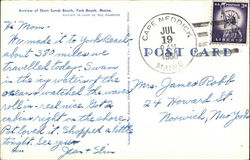 Airview of Short Sands Beach, York Beach, Maine.
Hi Mom-
We made it to York Beach
about 380 miles we
travelled today. Swam
in the icy waters of the
ocean & watched the waves
rollin-real nice. Got a
cabin right on the shore,
P.S. Loved it. Shopped a little
tonight. See you
Jean & Slim
CAPE NEDDICK
JUL
19
MAINE
POST CARD
Mrs. James Robb
24 Howard St.
Norwich, New York